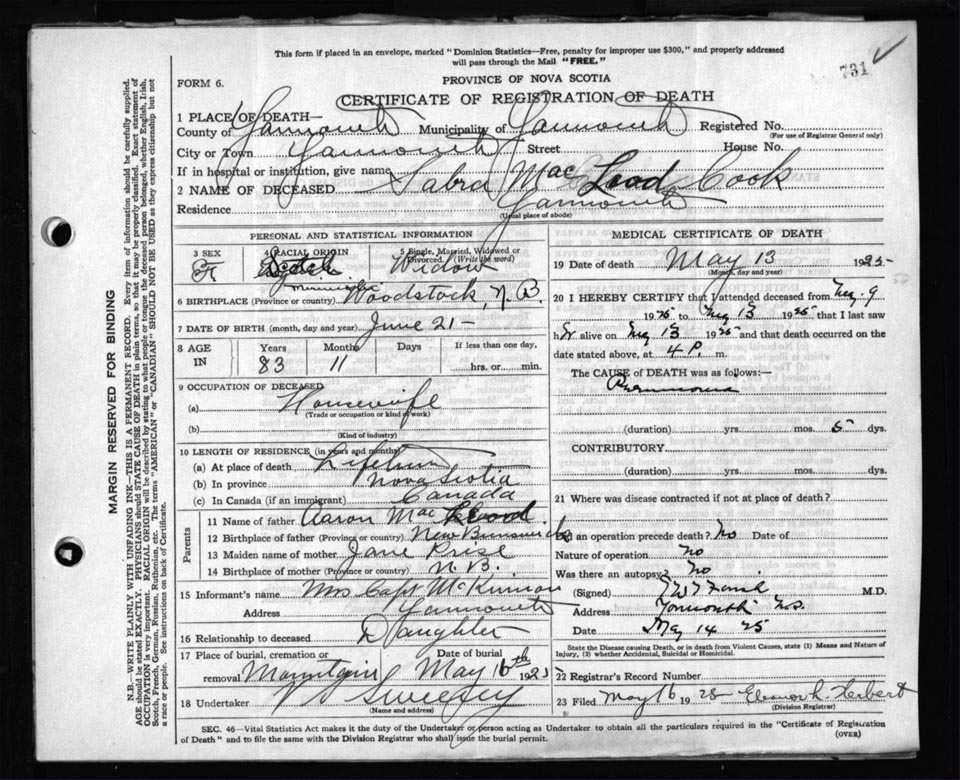 This form if placed in an envelope, marked "Dominion Statistics—Free, penalty for improper use $300," and properly addressed
will pass through the Mail "FREE."
731
FORM 6.
PROVINCE OF NOVA SCOTIA
CERTIFICATE OF REGISTRATION OF DEATH
1 PLACE OF DEATH—
County of Yarmouth Municipality of Yarmouth Registered No.
(For use of Registrar General only)
City or Town Yarmouth Street House No.
If in hospital or institution, give name
2 NAME OF DECEASED Sabra Mac Leod Cook
Residence Yarmouth
(Usual place of abode)
PERSONAL AND STATISTICAL INFORMATION
3 SEX F
4 RACIAL ORIGIN Scotch
5 Single, Married, Widowed or Divorced. (Write the word) Widow
6 BIRTHPLACE (Province or country) Woodstock, N. B.
7 DATE OF BIRTH (month, day and year) June 21 -
8 AGE IN Years Months Days If less than one day,
83 11 hrs. or min.
9 OCCUPATION OF DECEASED
(a) Housewife
(Trade or occupation or kind of work)
(b)
(Kind of industry)
10 LENGTH OF RESIDENCE (in years and months)
(a) At place of death Lifetime
(b) In province Nova Scotia
(c) In Canada (if an immigrant) Canada
Parents
11 Name of father Aaron Mac Leod.
12 Birthplace of father (Province or country) New Brunswick
13 Maiden name of mother Jane Prise
14 Birthplace of mother (Province or country) N. B.
15 Informant's name Mrs Capt McKinnon
Address Yarmouth
16 Relationship to deceased Daughter
17 Place of burial, cremation or removal Date of burial
Mountain May 16th 1925
18 Undertaker V S Sweeny
(Name and address)
MEDICAL CERTIFICATE OF DEATH
19 Date of death May 13 1925
(Month, day and year)
20 I HEREBY CERTIFY that I attended deceased from May 9
1925 to May 13 1925, that I last saw
her alive on May 13 1925 and that death occurred on the
date stated above, at 4 P. m.
The CAUSE of DEATH was as follows:—
Pneumonia
(duration) yrs. mos. 5 dys.
CONTRIBUTORY.
(duration) yrs. mos. dys.
21 Where was disease contracted if not at place of death?
Did an operation precede death? No Date of
Nature of operation No
Was there an autopsy? No
(Signed) M.D.
Address Yarmouth N.S.
Date May 14 25
State the Disease causing Death, or in death from Violent Causes, state (1) Means and Nature of
Injury, (2) whether Accidental, Suicidal or Homicidal.
22 Registrar's Record Number
23 Filed May 16 1925 Eleanor L. Herbert
(Division Registrar)
SEC. 46—Vital Statistics Act makes it the duty of the Undertaker or person acting as Undertaker to obtain all the particulars required in the "Certificate of Registration
of Death" and to file the same with the Division Registrar who shall issue the burial permit.
(OVER)
MARGIN RESERVED FOR BINDING
N.B.—WRITE PLAINLY WITH UNFADING INK—THIS IS A PERMANENT RECORD. Every item of information should be carefully supplied.
AGE should be stated EXACTLY. PHYSICIANS should STATE CAUSE OF DEATH in plain terms, so that it may be properly classified. Exact statement of
OCCUPATION is very important. RACIAL ORIGIN will be described by stating to what people or tongue the deceased person belonged, whether English, Irish,
Scotch, French, German, Russian, Ruthenian, etc. The terms "AMERICAN" or "CANADIAN" SHOULD NOT BE USED as they express citizenship but not
a race or people. See instructions on back of Certificate.